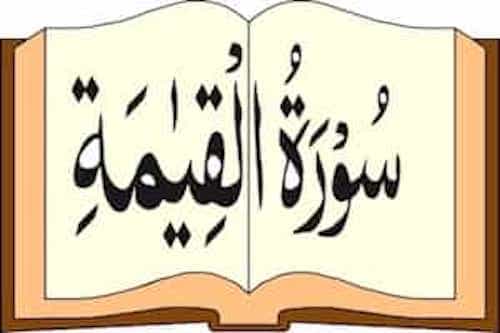 سُوْرَةُ الْقِيٰمَةِ